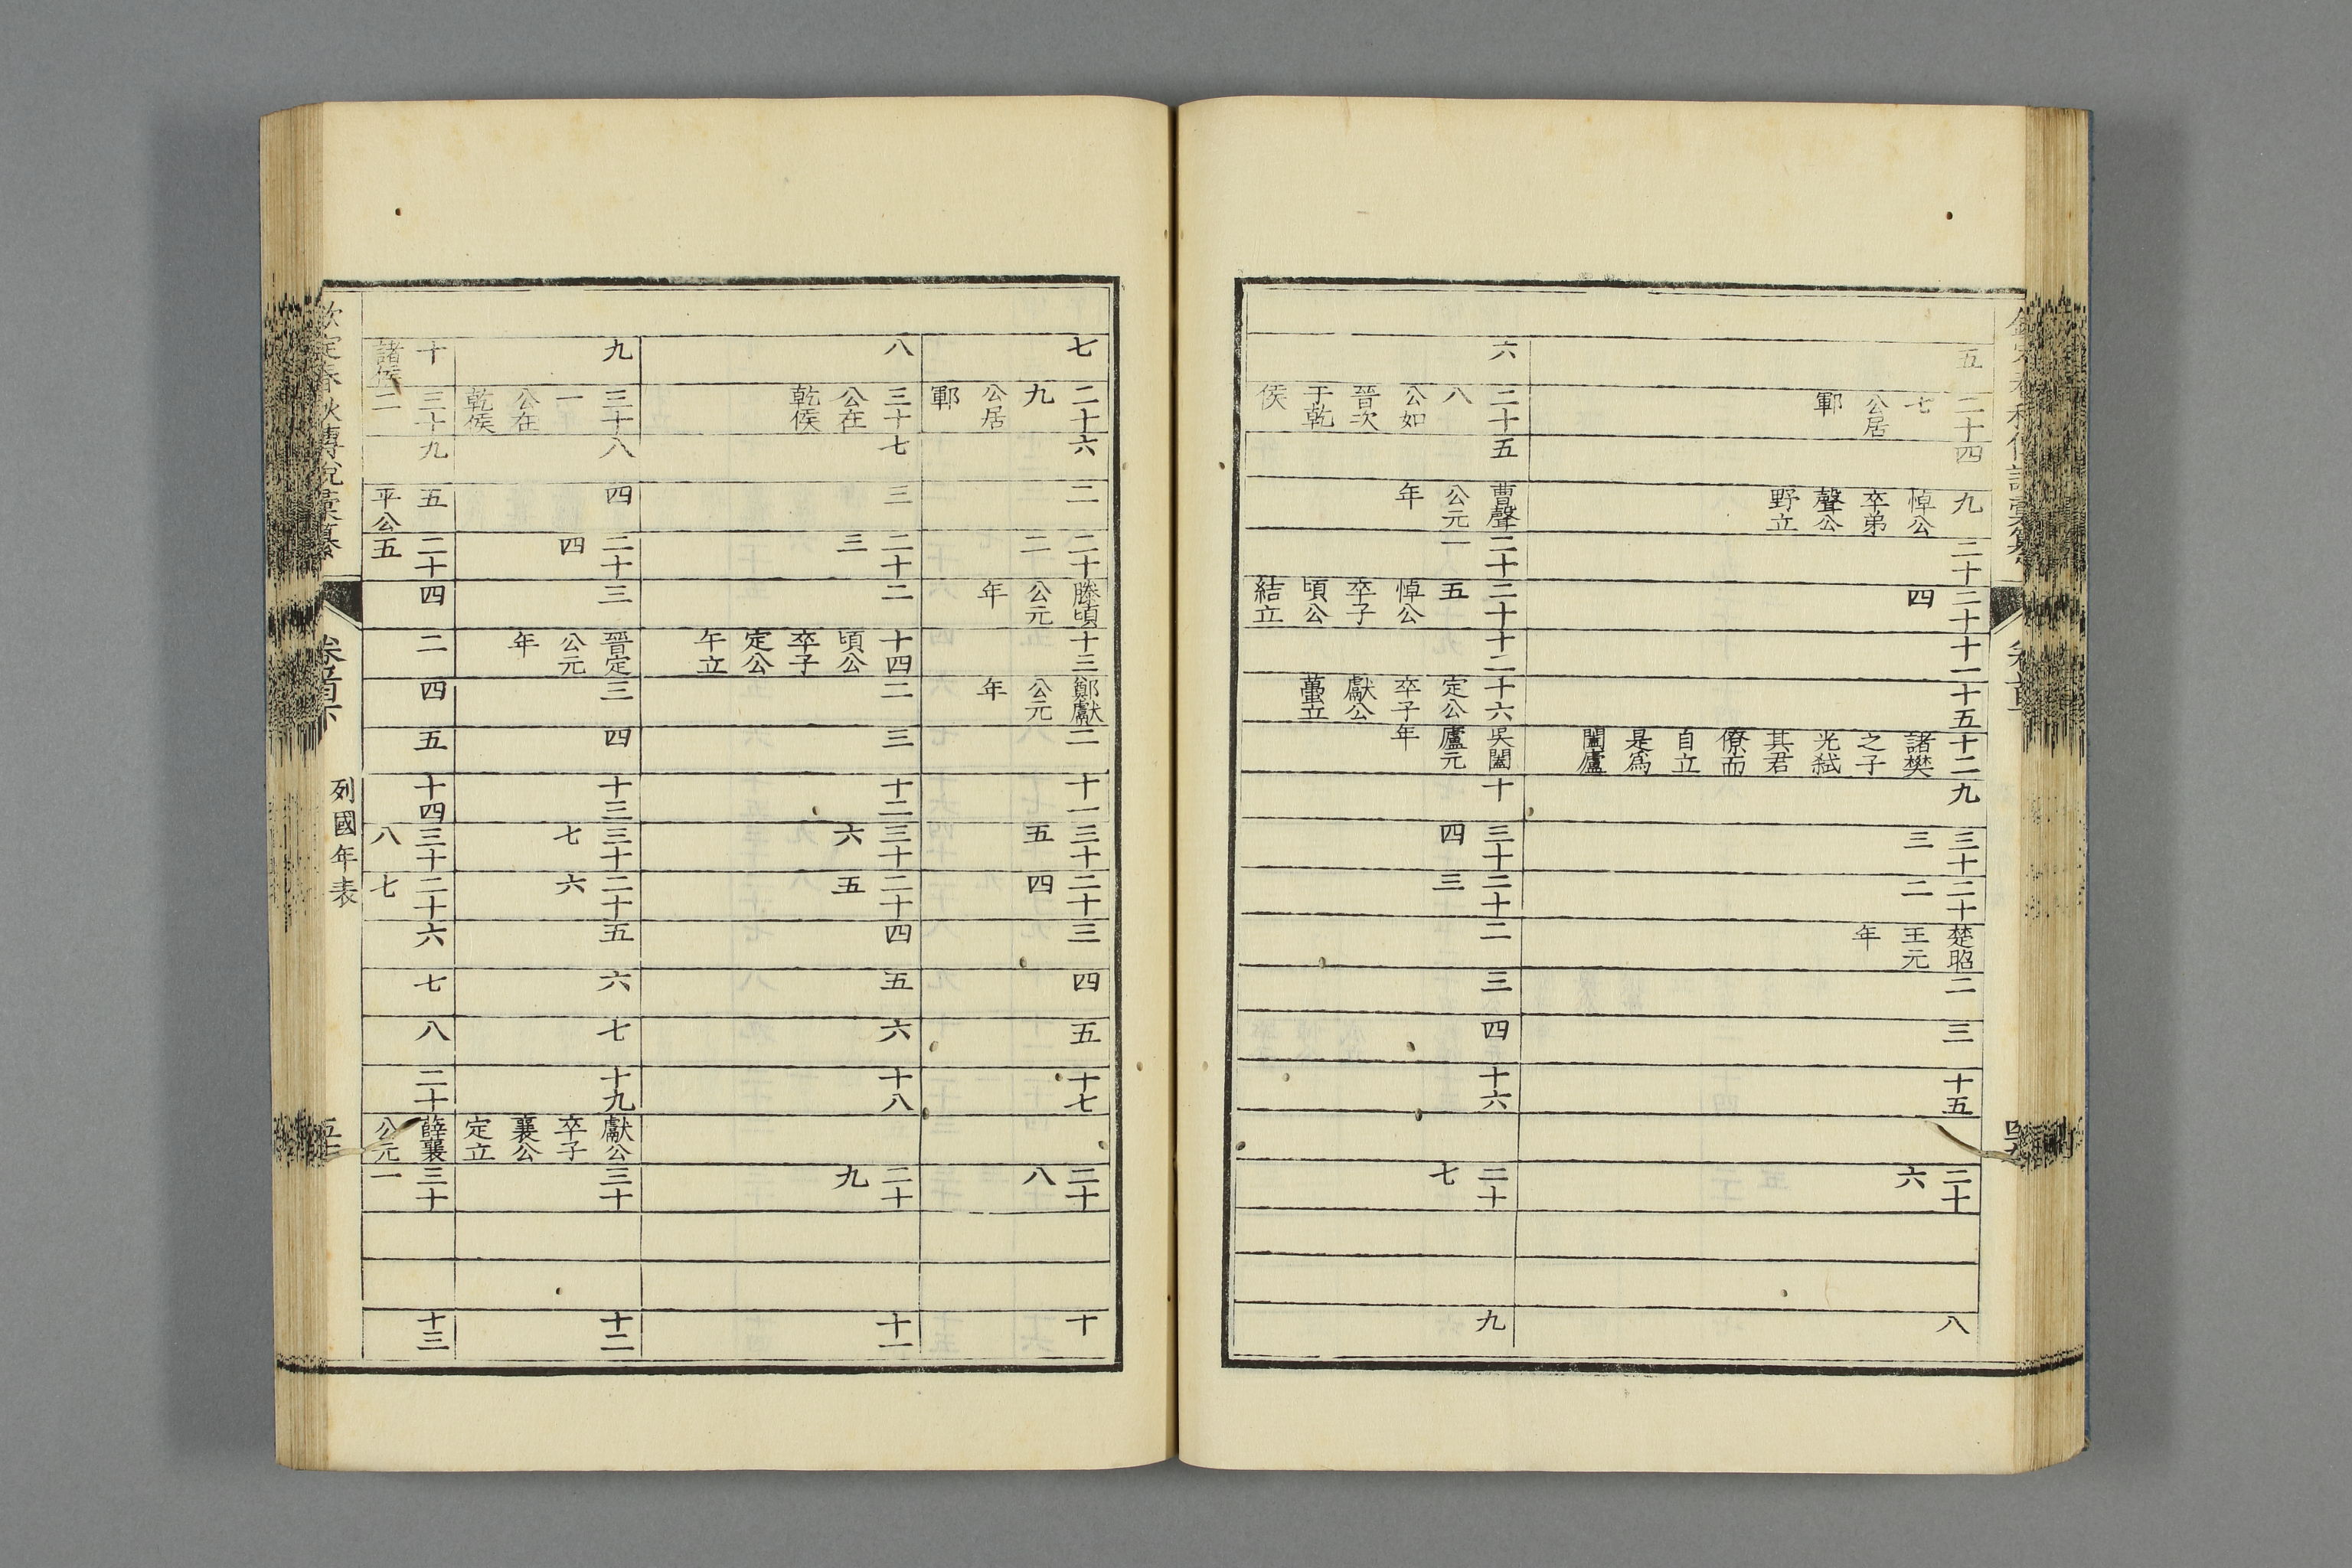 欽定春秋傳說彙纂
卷首下
五
二十七公居鄆
四
九悼公卒弟聲公野立
二十
二十四
十一
十五
十二諸樊之子光弑其君僚而自立是爲闔廬
九
三十三
二十二
楚昭王元年
二
三
十五
二十六
八
六
二十八公如晉次于乾侯
五
曹聲公元年
二十一
二十五悼公卒子頃公結立
十二
十六定公卒子獻公蠆立
吳闔廬元年
十
三十四
二十三
二
三
四
十六
二十七
九
七
二十九公居鄆
六
二
二十二
滕頃公元年
十三
鄭獻公元年
二
十一
三十五
二十四
三
四
五
十七
二十八
十
八
三十公在乾侯
七
三
二十三
二
十四頃公卒子定公午立
二
三
十二
三十六
二十五
四
五
六
十八
二十九
十一
九
三十一公在乾侯
八
四
二十四
三
晉定公元年
三
四
十三
三十七
二十六
五
六
七
十九
獻公卒子襄公定立
三十
十二
十諸侯
三十二
九
五平公
二十五
四
二
四
五
十四
三十八
二十七
六
七
八
二十
薛襄公元
三十一
十三
欽定春秋傳說彙纂
卷首下
列國年表